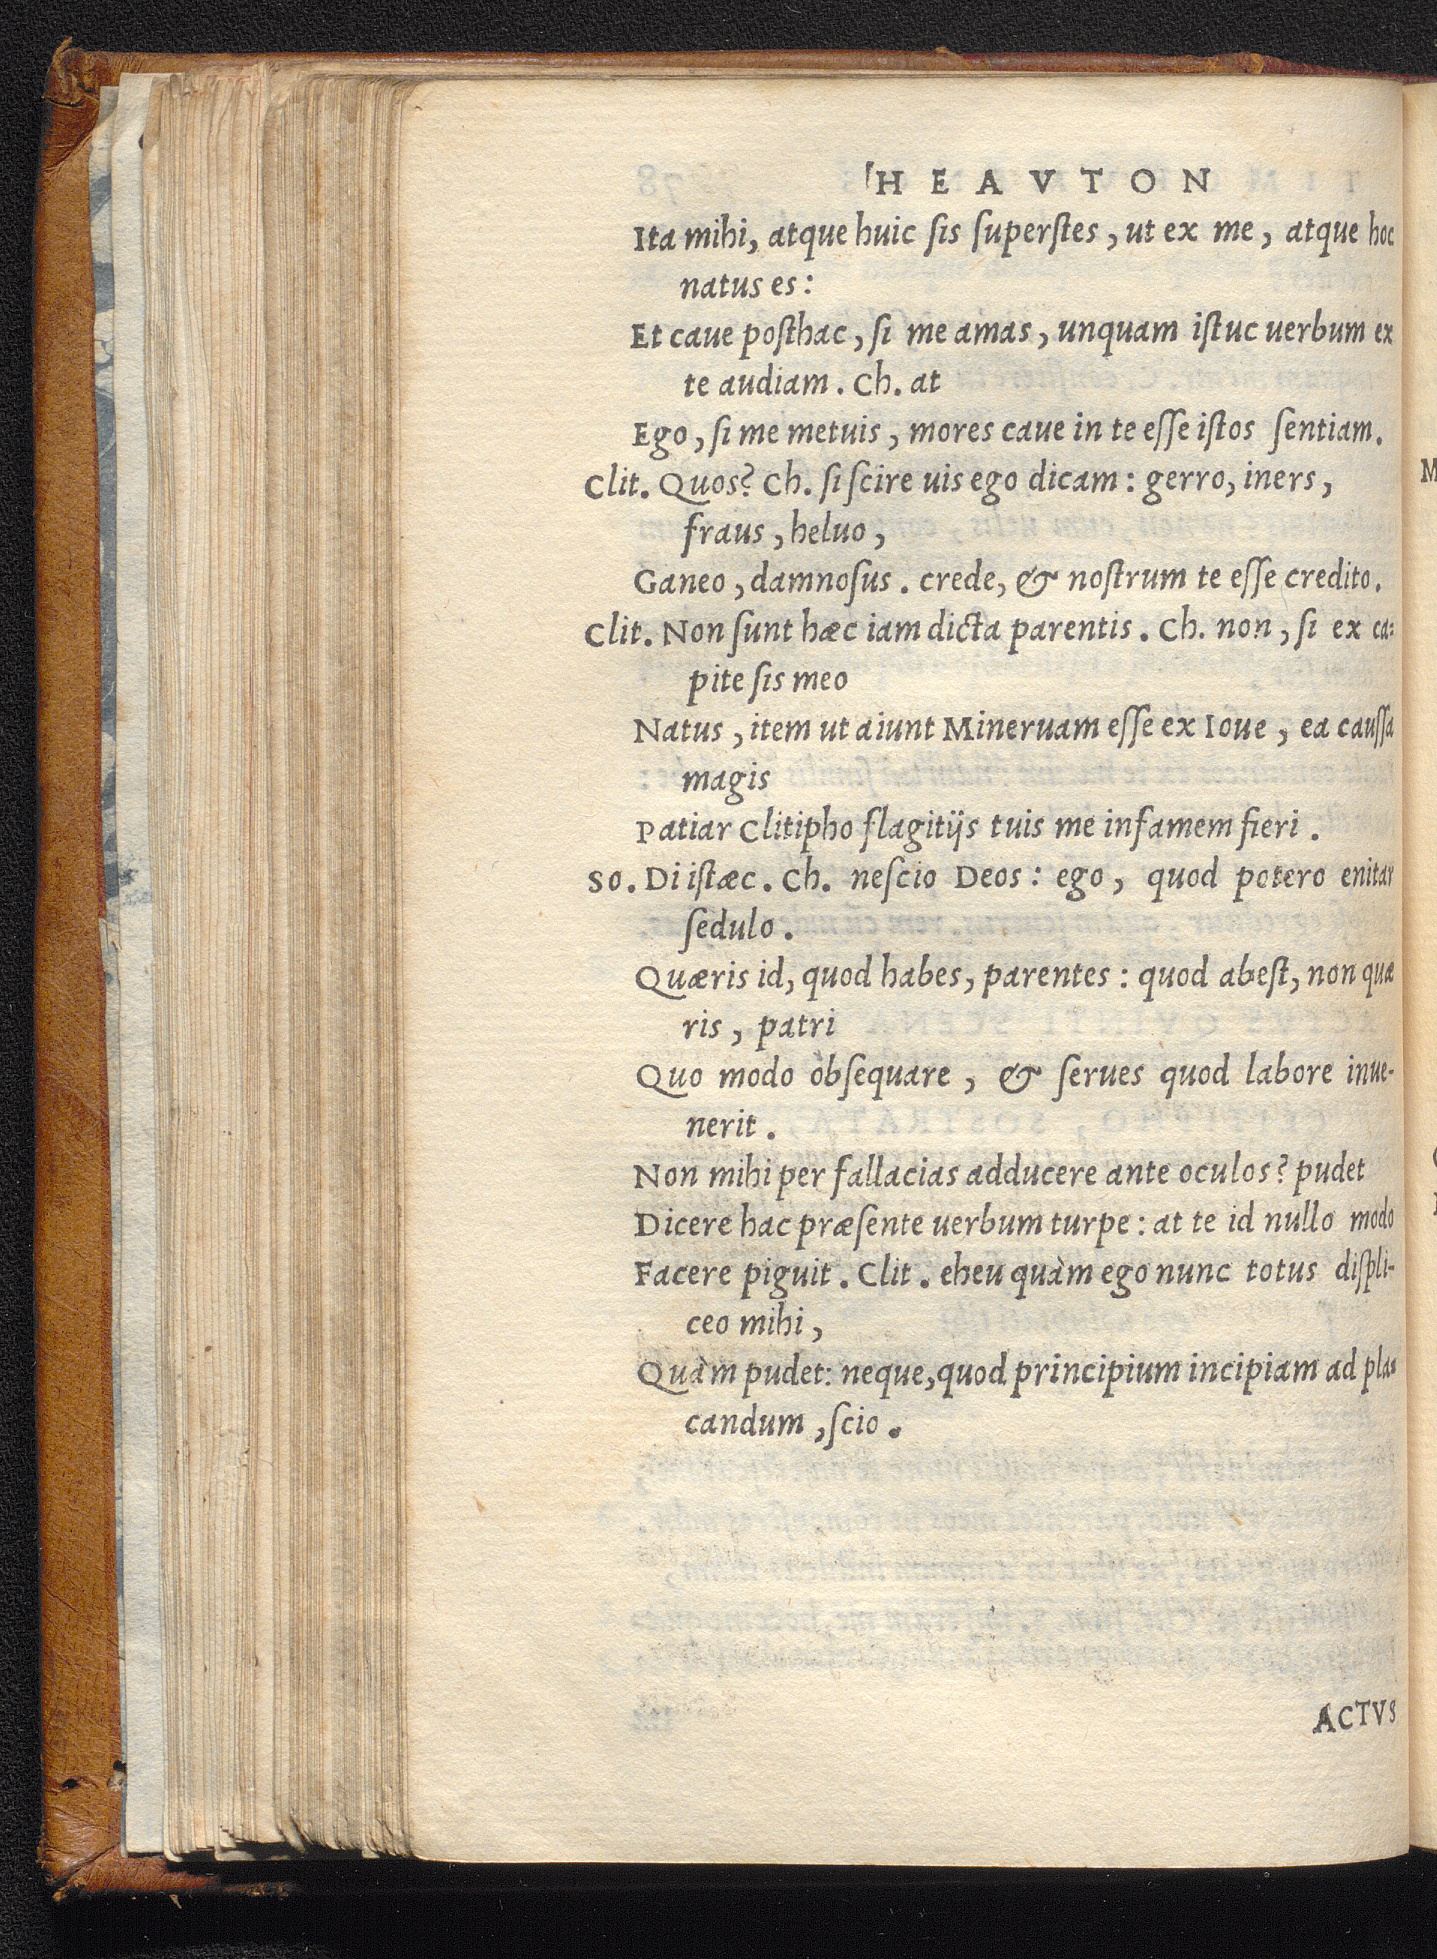 HEAVTON
Ita mihi, atque huic ſis ſuperſtes, ut ex me, atque hoc
natus es:
Et caue poſthac, ſi me amas, unquam iſtuc uerbum ex
te audiam. Ch. at
Ego, ſi me metuis, mores caue in te eſſe iſtos ſentiam.
Clit. Quos? Ch. ſi ſcire uis ego dicam: gerro, iners,
fraus, heluo,
Ganeo, damnoſus. crede, & noſtrum te eſſe credito.
Clit. Non ſunt hæc iam dicta parentis. Ch. non, ſi ex ca-
pite ſis meo
Natus, item ut aiunt Mineruam eſſe ex Ioue, ea cauſſa
magis
Patiar Clitipho flagitijs tuis me infamem fieri.
So. Di iſtæc. Ch. neſcio Deos: ego, quod potero enitar
ſedulo.
Quæris id, quod habes, parentes: quod abeſt, non quæ
ris, patri
Quo modo obſequare, & ſerues quod labore inue-
nerit.
Non mihi per fallacias adducere ante oculos? pudet
Dicere hac præſente uerbum turpe: at te id nullo modo
Facere piguit. Clit. eheu quàm ego nunc totus diſpli-
ceo mihi,
Quàm pudet: neque, quod principium incipiam ad pla-
candum, ſcio.
ACTVS